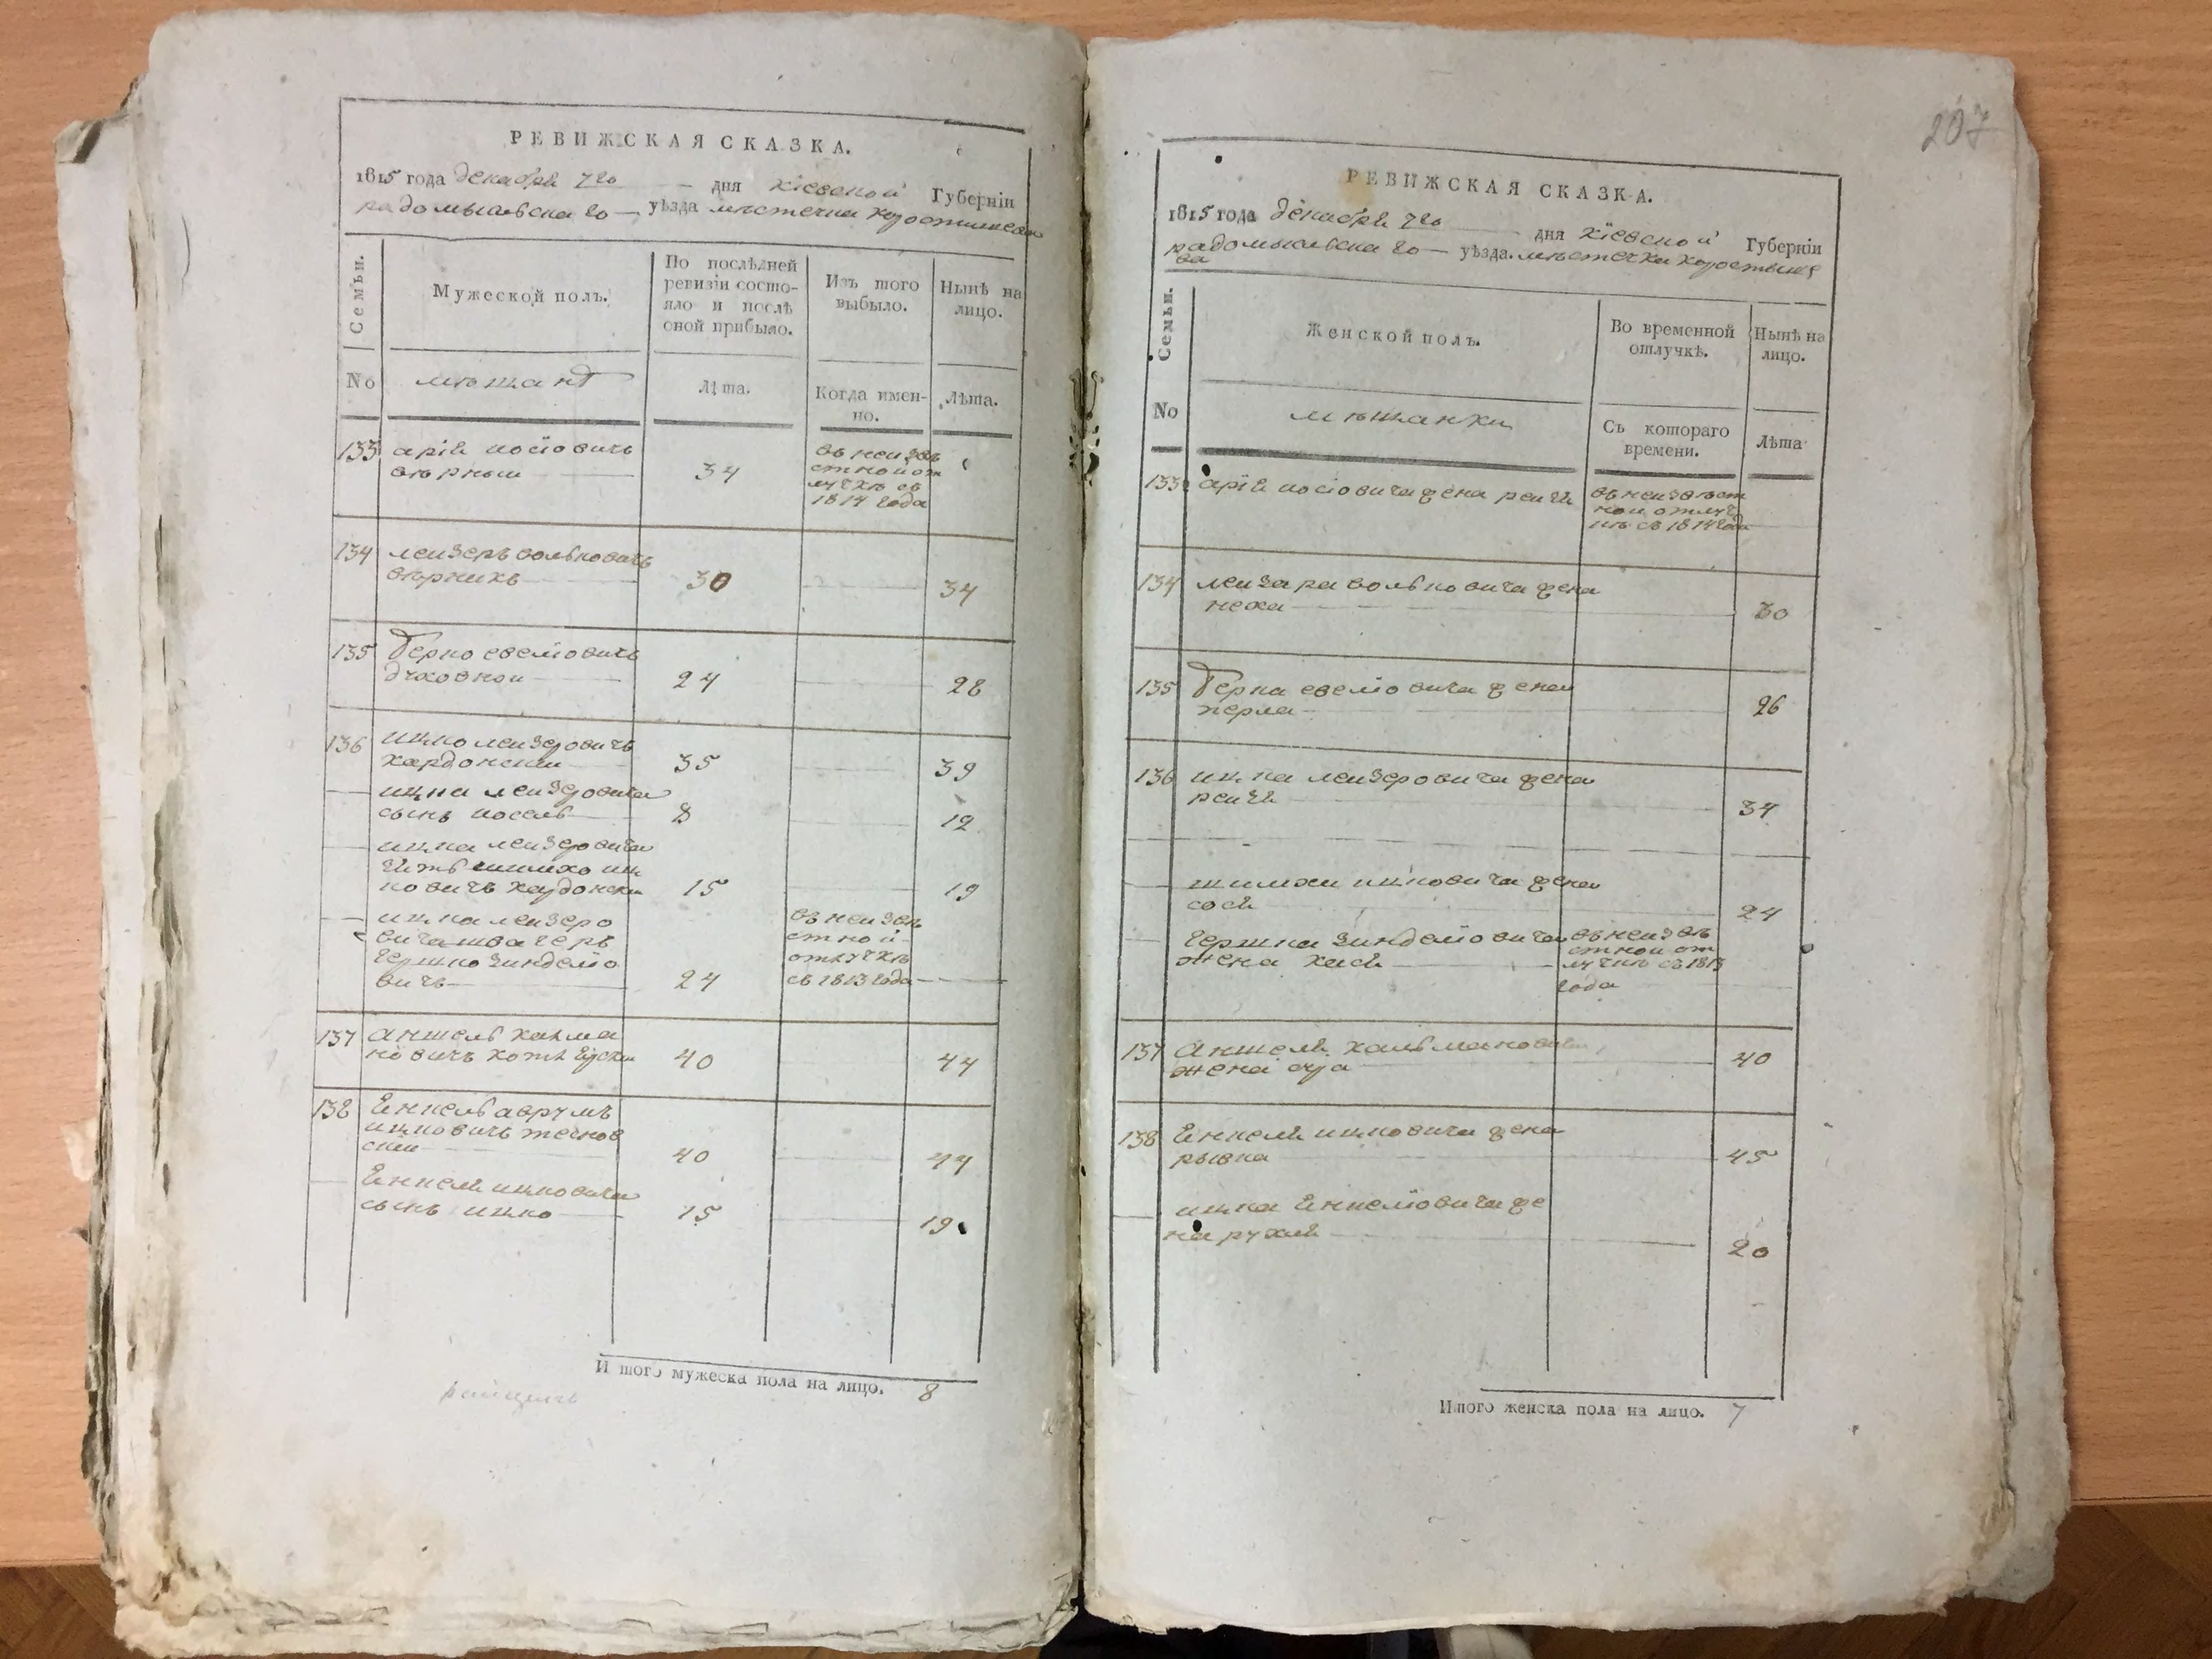 РЕВИЖСКАЯ СКАЗКА.
1815 года декабря 7го дня кіевской Губерніи
радомысльскаго уѣзда мѣстечка
Семьи.
Мужеской полъ.
По послѣдней
ревизіи состо-
яло и послѣ
оной прибыло.
Изъ того
выбыло.
Нынѣ на
лицо.
No
мѣщанъ
Лѣта.
Когда имен-
но.
Лѣта.
133 арій иосіовичъ
34
въ неизвѣ
стной от
лучкѣ съ
1814 года
134 лейзеръ волковичъ
30 34
135 Берко евеліовичъ
духовной
24 28
136 ицко лейзеровичъ
кардонскій 35 39
ицка лейзеровича
сынъ иосель 8 12
ицка лейзеровича
зять шлихо иц
ковичъ кардонски 15 19
ицка лейзеро
вича швагеръ
гершко зинделіо
вичъ 24
въ неизвѣ
стной
отлучкѣ
съ 1813 года
137 Аншель калма
новичъ 40 44
138 Енкель аврумъ
ицковичъ
40 44
Енкеля ицковича
сынъ ицко 15 19
И того мужеска пола на лицо. 8
207
РЕВИЖСКАЯ СКАЗКА.
1815 года декабря 7го дня кіевской Губерніи
радомысльскаго уѣзда. мѣстечка коростыше
ва
Семьи.
Женской полъ.
Во временной
отлучкѣ.
Нынѣ на
лицо.
No
мѣщанки
Съ котораго
времени.
Лѣта
133 арія иосіовича жена рейзя
въ неизвѣст
ной отлуч
кѣ съ 1814 года
134 лейзара вольковича жена
неха 30
135 Берка евеліовича жена
перла 26
136 ицка лейзеровича жена
рейзя 34
ицковича жена
сося 24
гершка зинделіовича
жена хася
въ неизвѣ
стной от
лучкѣ съ 1813
года
137 Аншеля кальмановича
жена сура 40
138 Енкеля ицковича жена
рывка 45
ицка Енкеліовича же
на рухля 20
Итого женска пола на лицо. 7